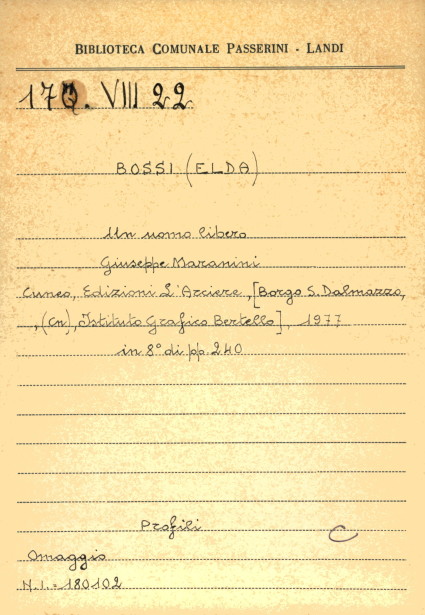 BIBLIOTECA COMUNALE PASSERINI - LANDI
17Q. VIII 22
BOSSI (ELDA)
Un uomo libero
Giuseppe Maranini
Cuneo, Edizioni L'Arciere, [Borgo S. Dalmazzo,
, (Cn), Istituto Grafico Bertello], 1977
in 8° di pp. 240
Profili
C
Omaggio
N.I. = 180102